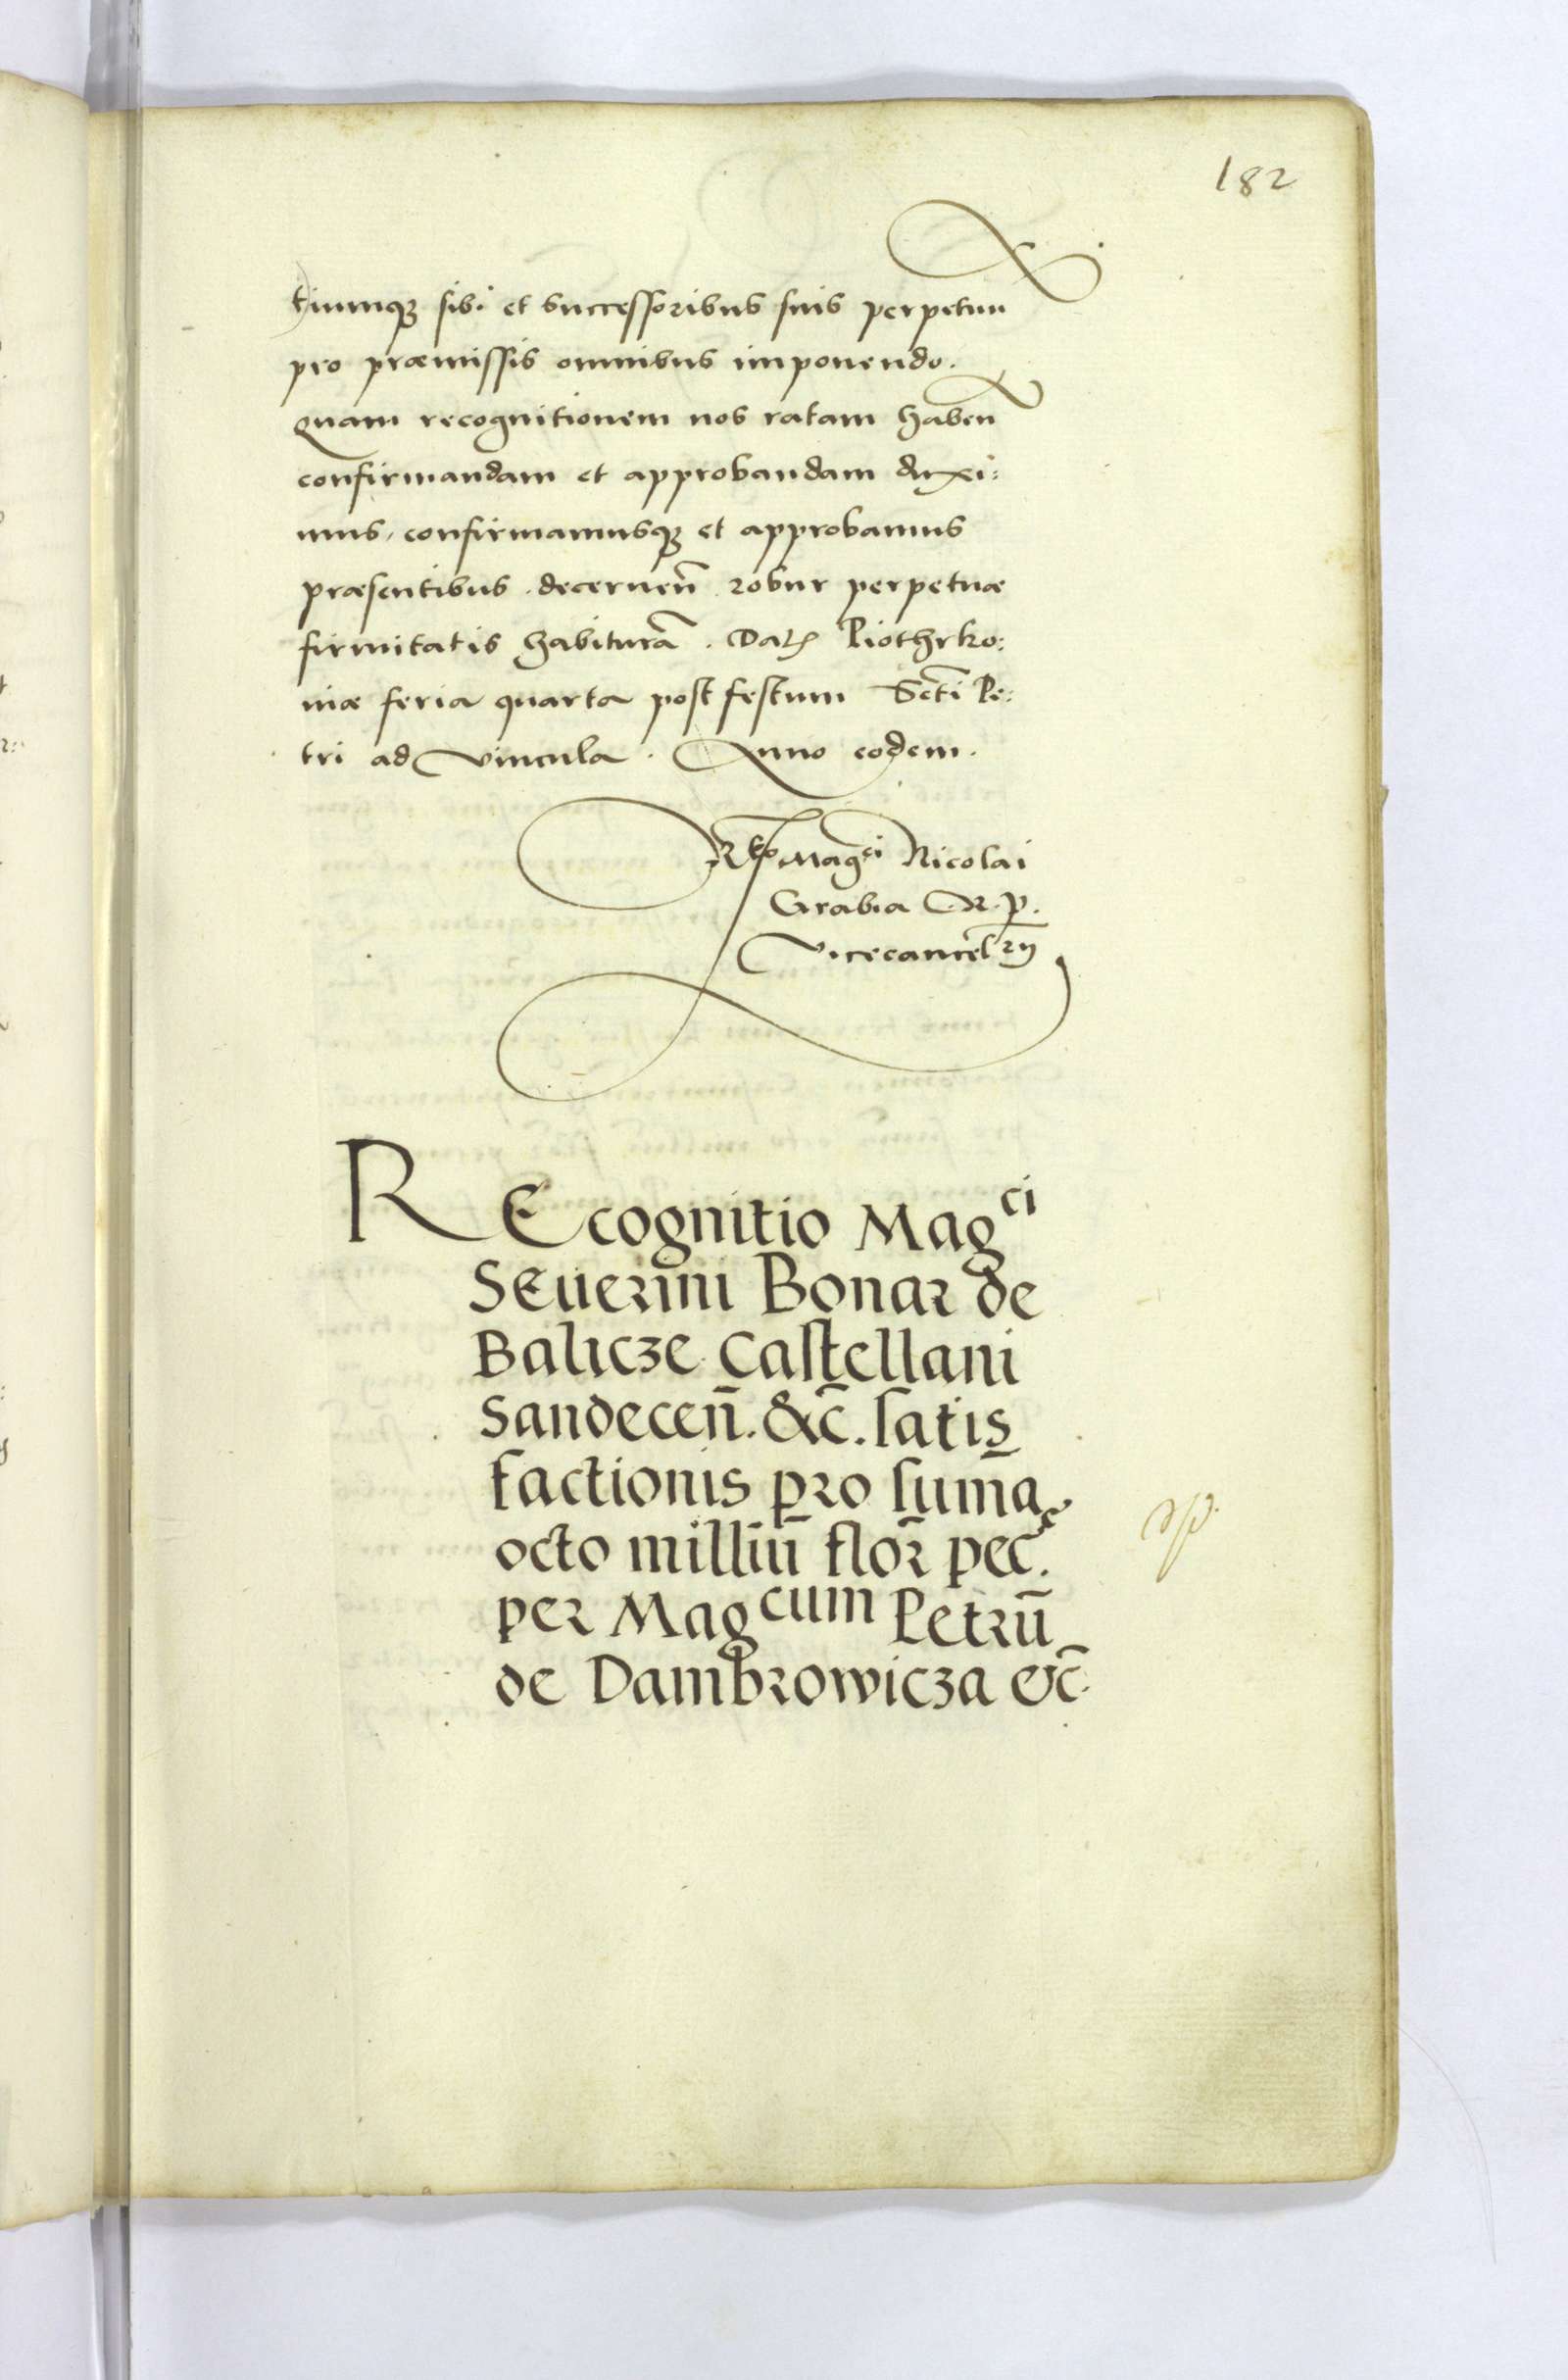 182
tiumq3 sibi et successoribus suis perpetuu
pro præmissis omnibus imponendo.
Quam recognitionem nos ratam haben̄
confirmandam et approbandam duxi:
mus, confirmamusq3 et approbamus
præsentibus. decernen̄ robur perpetuæ
firmitatis habiturā. Datꝭ Piothrko:
uiæ feria quarta post festum Scti Pe:
tri ad vincula. Anno eodem.
Rᵗⁱᵒ Magᶜⁱ Nicolai
Grabia R. P.
Vicecancelʳⁱʲ
REcognitio Magᶜⁱ
Seuerini Bonar de
Balicze Castellani
Sandecen̄. &c̄. satis
factionis pro sum̄a
octo milliū flor̄ pec̄.
per Magᶜᵘᵐ Petrū
de Dambrowicza &c̄.